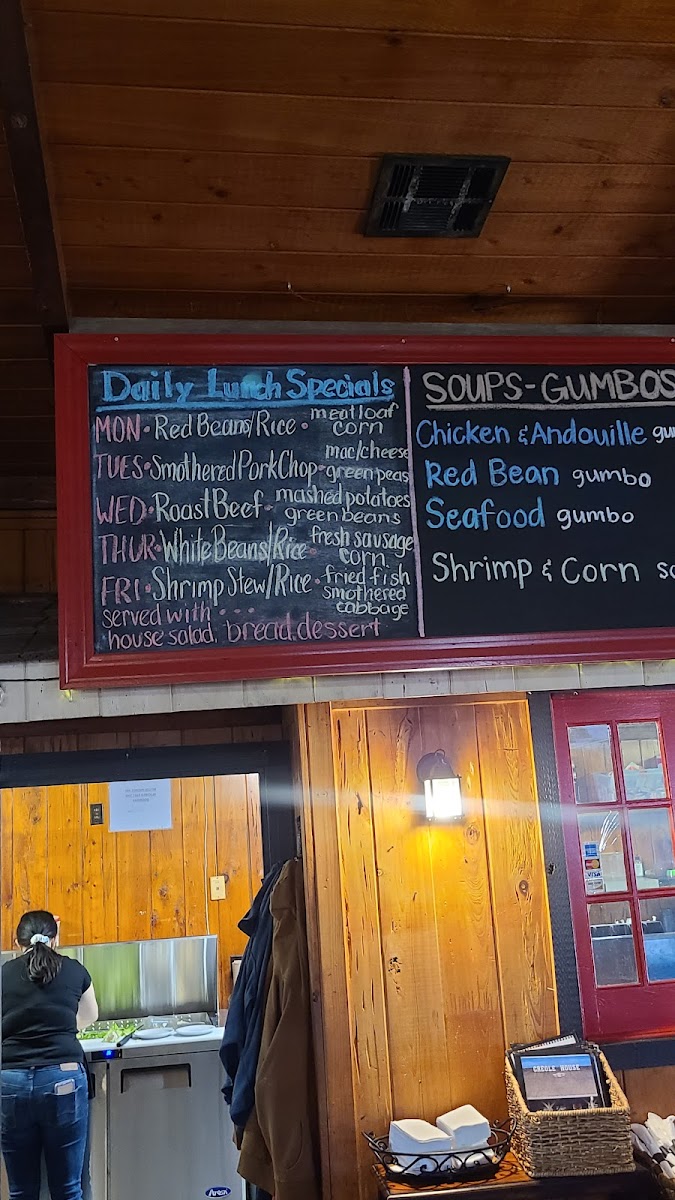 Daily Lunch Specials
MON • Red Beans/Rice • meatloaf
corn
TUES • Smothered Pork Chop • mac/cheese
green peas
WED • Roast Beef • mashed potatoes
green beans
THUR • White Beans/Rice • fresh sausage
corn
FRI • Shrimp Stew/Rice • fried fish
smothered
cabbage
served with • • •
house salad, bread, dessert
SOUPS - GUMBO'S
Chicken & Andouille
Red Bean gumbo
Seafood gumbo
Shrimp & Corn
VISA
CREOLE HOUSE
Atosa